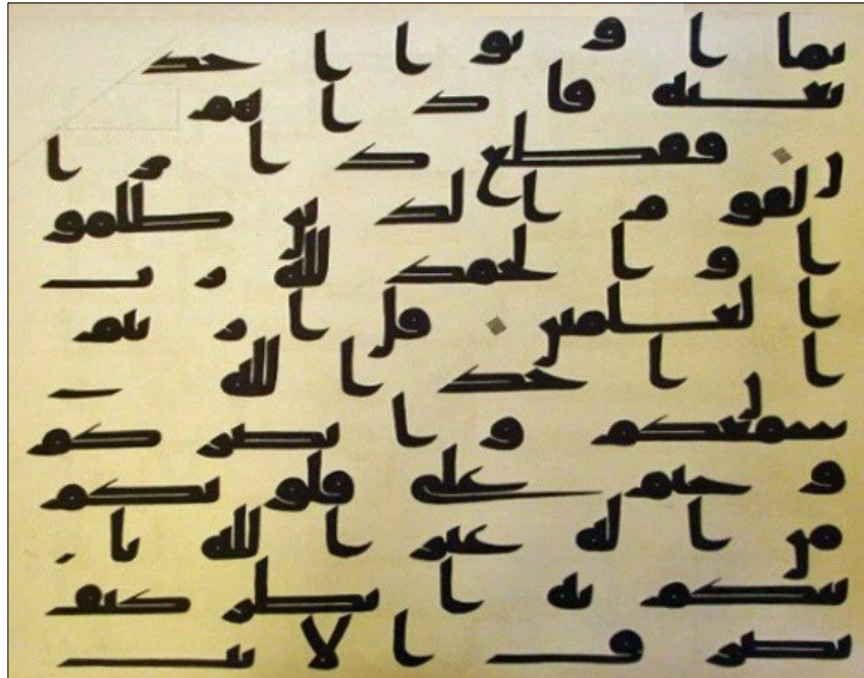 بما اوتوا اخذ
بغته فاذا هم
ن فقطع دابر ا
لقوم الذين ظلمو
ا والحمد لله رب
العلمين قل اريتم
ان اخذ الله
سمعكم وابصركم
وختم على قلوبكم
من اله غير الله يا
تيكم به انظر كيف
نصرف الايت